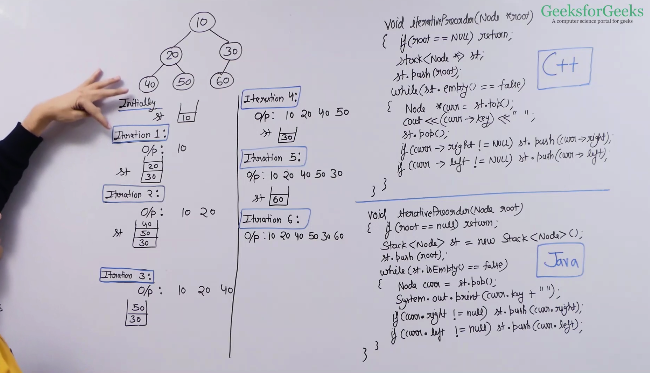 10
20 30
40 50 60
Initially
st
10
Iteration 1:
O/p: 10
st
20
30
Iteration 2:
O/p: 10 20
st
40
50
30
Iteration 3:
O/p: 10 20 40
50
30
Iteration 4:
O/p: 10 20 40 50
st
30
Iteration 5:
O/p: 10 20 40 50 30
st
60
Iteration 6:
O/p: 10 20 40 50 30 60
GeeksforGeeks
A computer science portal for geeks
void iterativePreorder(Node *root)
{ if(root == NULL) return;
stack<Node *> st;
st.push(root);
while(st.empty() == false)
{ Node *curr = st.top();
cout << (curr->key) << " ";
st.pop();
if(curr->right != NULL) st.push(curr->right);
if(curr->left != NULL) st.push(curr->left);
} }
C++
void iterativePreorder(Node root)
{ if(root == null) return;
Stack<Node> st = new Stack<Node>();
st.push(root);
while(st.isEmpty() == false)
{ Node curr = st.pop();
System.out.print(curr.key + " ");
if(curr.right != null) st.push(curr.right);
if(curr.left != null) st.push(curr.left);
}
}
Java